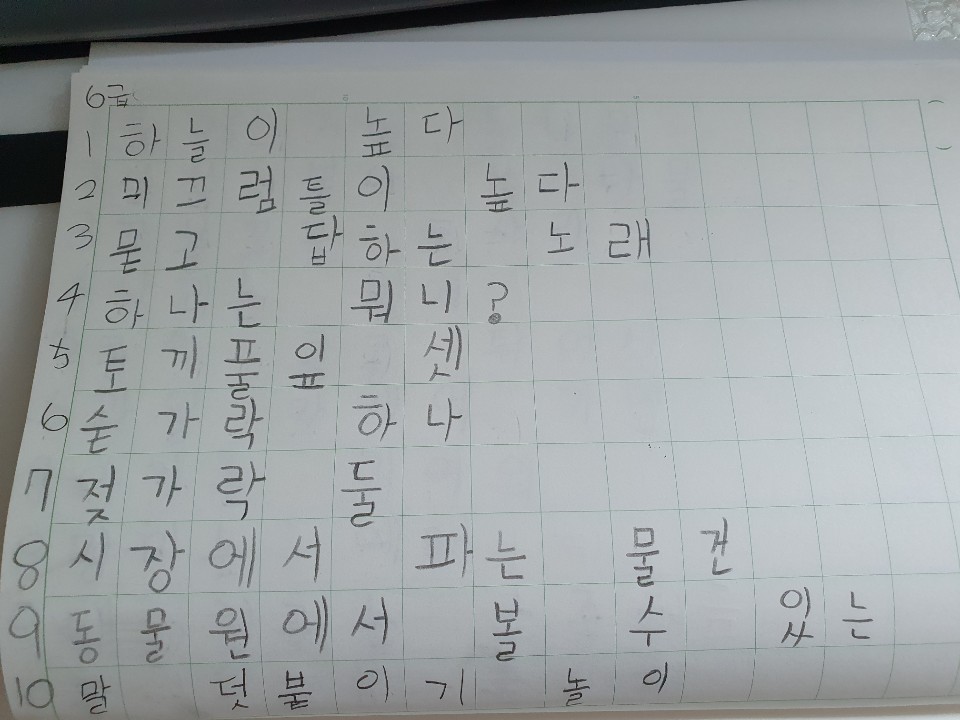 6급
1 하늘이 높다
2 미끄럼틀이 높다
3 묻고 답하는 노래
4 하나는 뭐니?
5 토끼풀잎 셋
6 숟가락 하나
7 젓가락 둘
8 시장에서 파는 물건
9 동물원에서 볼 수 있는
10 말 덧붙이기 놀이